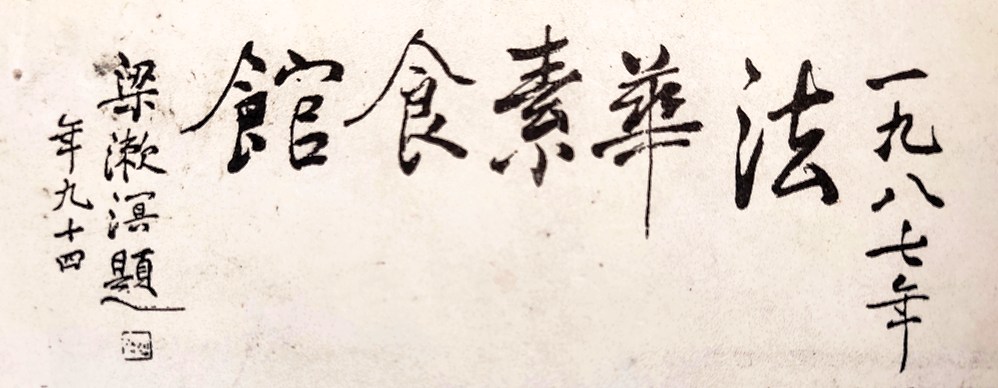 一九八七年
法華素食館
梁漱溟題
年九十四